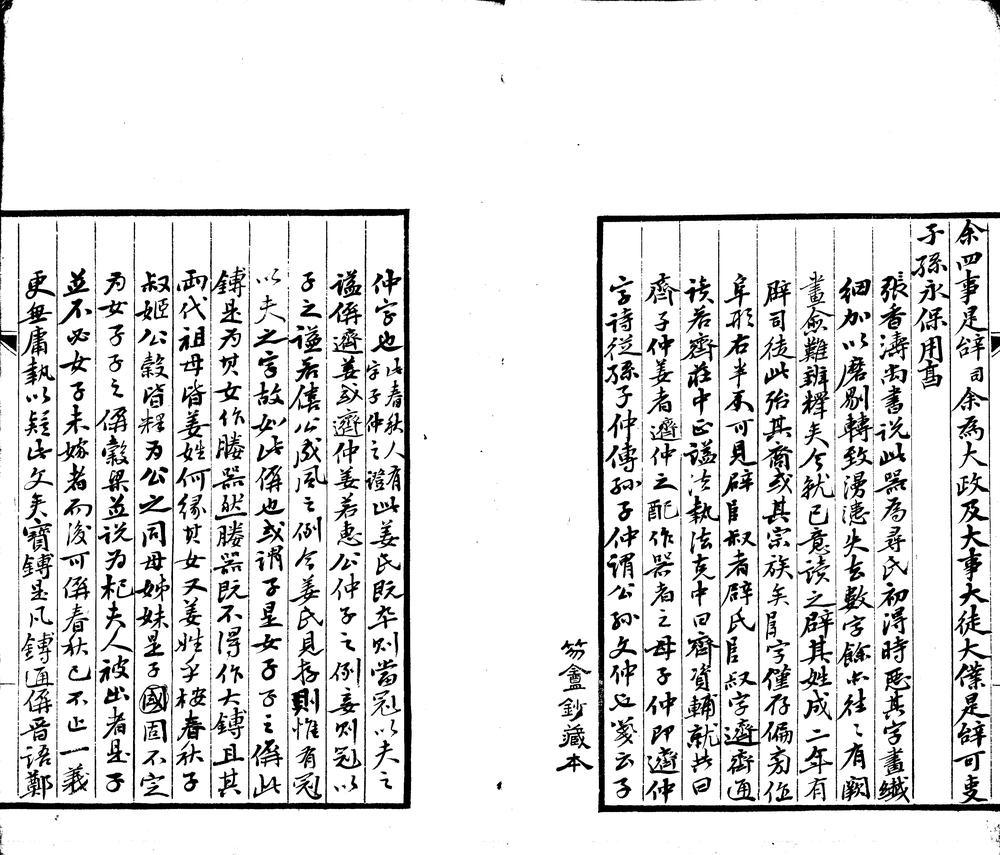 余四事是辝司余為大政及大事大徒大僕是辝可吏
子孫永保用亯
張香濤尚書說此器為尋氏初得時惡其字畫纖
細加以磨剔轉致湧漶失去數字餘亦往〻有闕
畫愈難辨釋矣今就己意讀之辟其姓成二年有
辟司徒此殆其裔或其宗族矣字僅存偏旁似
阜形右半不可見辟臣叔者辟氏臣叔字適齊通
讀若齊莊中正謚法執法克中曰齊資輔就共曰
齊子仲姜者適仲之配作器者之母子仲即適仲
字詩從孫子仲傳孫子仲謂公孫文仲也箋云子
笏盦鈔藏本
仲字也此春秋人有字子仲之證此姜氏既卒則當冠以夫之
謚偁適姜或適仲姜若惠公仲子之例妾則冠以
子之謚若僖公成風之例今姜氏見存則惟有冠
以夫之字故如此偁也或謂子是女子子之偁此
鎛是為其女作媵器然媵器既不得作大鎛且其
兩代祖母皆姜姓何緣其女又姜姓乎桉春秋子
叔姬公穀皆釋為公之同母姊妹是子國固不定
為女子子之偁穀梁並說為杞夫人被出者是子
並不必女子未嫁者而後可偁春秋已不止一義
更無庸執以疑此文矣寶鎛是凡鎛通偁晉語鄭